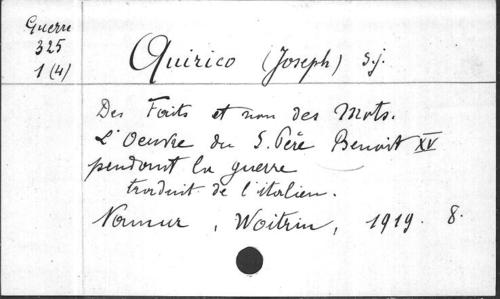 Guerre
325
1 (4)
Quirico (Joseph) s.j.
Des Faits et non des Mots.
L'Oeuvre du S. Père Benoit XV
pendant la guerre
traduit de l'italien.
Namur, Woitrin, 1919. 8.